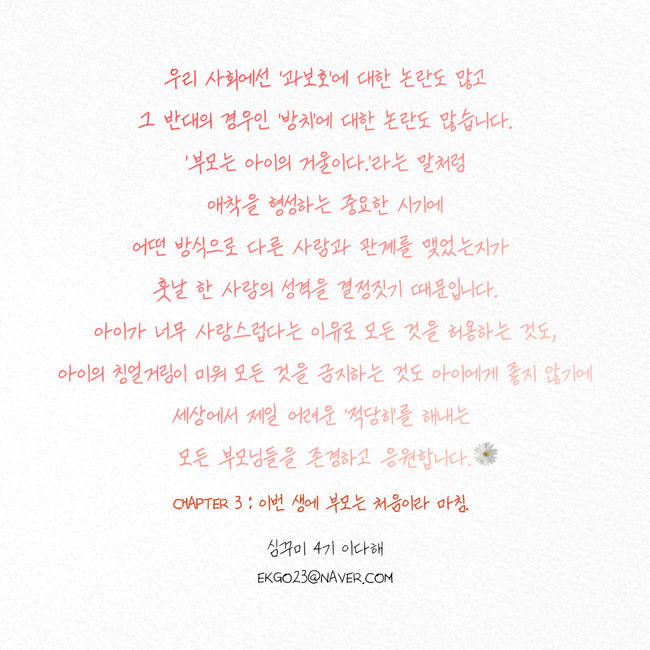 우리 사회에선 '과보호'에 대한 논란도 많고
그 반대의 경우인 '방치'에 대한 논란도 많습니다.
'부모는 아이의 거울이다.'라는 말처럼
애착을 형성하는 중요한 시기에
어떤 방식으로 다른 사람과 관계를 맺었는지가
훗날 한 사람의 성격을 결정짓기 때문입니다.
아이가 너무 사랑스럽다는 이유로 모든 것을 허용하는 것도,
아이의 칭얼거림이 미워 모든 것을 금지하는 것도 아이에게 좋지 않기에
세상에서 제일 어려운 '적당히'를 해내는
모든 부모님들을 존경하고 응원합니다.
CHAPTER 3 : 이번 생에 부모는 처음이라 마침.
심꾸미 4기 이다해
EKGO23@NAVER.COM